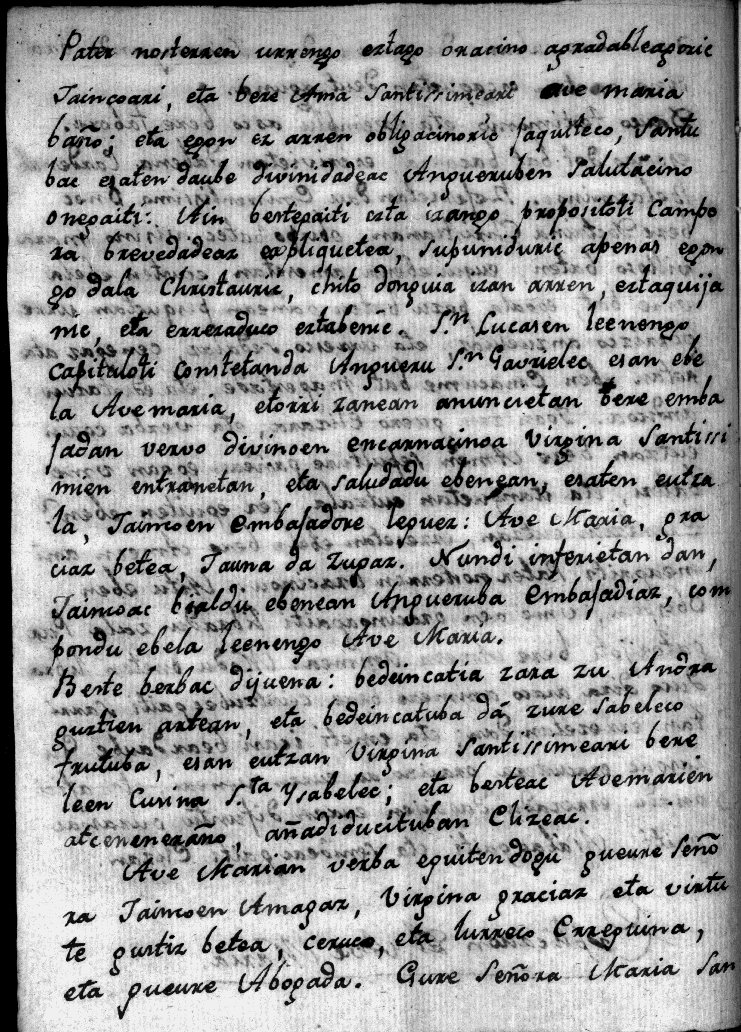 Pater nosterren urrengo eztago oracino agradableagoric
Taincoari, eta bere Ama Santissimeari Ave maria
baño; eta egon ez arren obligacinoric jaquiteco, Santu
bac esaten daube divinidadeac Angueruben Salutacino
onegaiti. Ain bestegaiti ezta izango propositoti Campo
ra brevedadeaz expliquetea, supuniduric apenas egon
go dala Christauric, chito donguia izan arren, eztaquija
nic, eta errezaduco eztabenic. S.n Lucasen leenengo
capituloti constetanda Angueru S.n Gavrielec esan ebe
la Avemaria, etorri zanean anuncietan bere emba
jadan vervo divinoen encarnacinoa Virgina Santissi
mien entranetan, eta saludadu ebenean, esaten eutza
la, Taincoen embajadore leguez: Ave Maria, gra
ciaz betea, Jauna da zugaz. Nundi inferietan dan,
Taincoac bijaldu ebenean Angueruba Embajadiaz, com
pondu ebela leenengo Ave Maria.
Beste berbac dijuena: bedeincatia zara zu Andra
guztien artean, eta bedeincatuba da zure sabeleco
frutuba, esan eutzan Virgina Santissimeari bere
leen Cusina S.ta Ysabelec; eta besteac Avemarien
atcenengraño, añadiducituban Elizeac.
Ave Marian verba eguitendogu gueure Seño
ra Taincoen Amagaz, Virgina graciaz eta virtu
te guztiz betea, ceruco, eta lurreco Erreguina,
eta gueure Abogada. Gure Señora Maria San